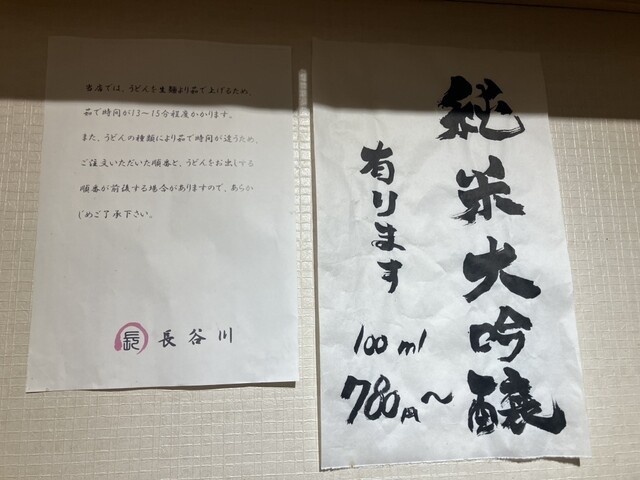 当店では、うどんを生麺より茹で上げるため、
茹で時間が13～15分程度かかります。
また、うどんの種類により茹で時間が違うため、
ご注文いただいた順番と、うどんをお出しする
順番が前後する場合がありますので、あらか
じめご了承下さい。
長谷川
純米大吟醸
有ります
100ml
780円～